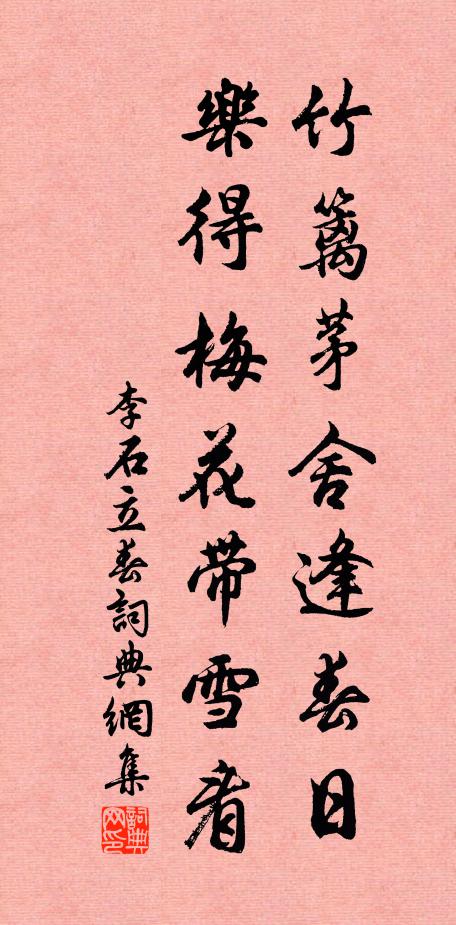 竹篱茅舍逢春日
樂得梅花带雪看
李石立春詞典網集
詞典网印